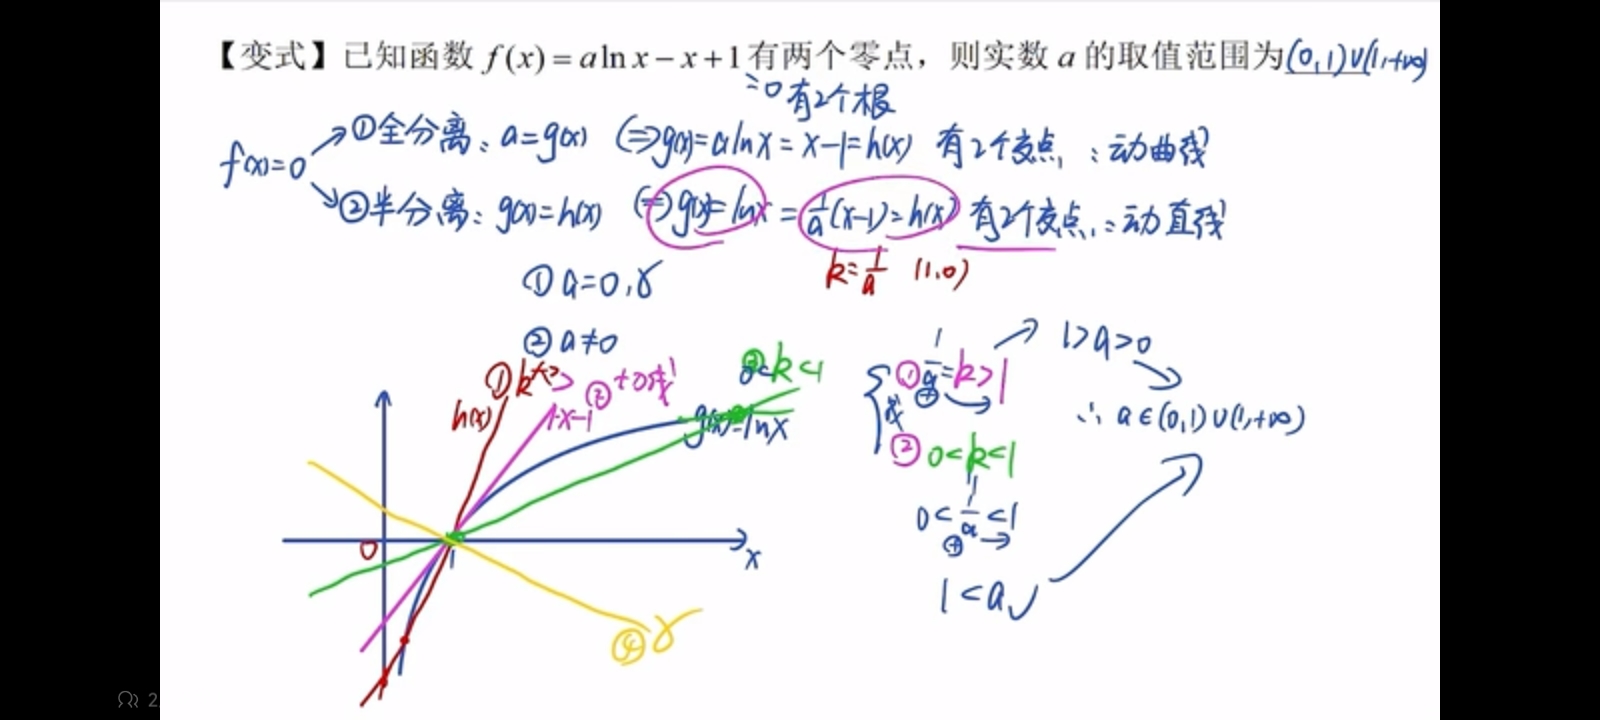 【变式】已知函数 f(x)=alnx−x+1有两个零点，则实数 a 的取值范围为(0,1)∪(1,+∞)
=0 有2个根
f(x)=0
①全分离：a=g(x) (⇒g(x)=alnx=x-1=h(x) 有2个交点，：动曲线
②半分离：g(x)=h(x) (⇒g(x)=lnx=1/a(x-1)=h(x) 有2个交点，：动直线
k=1/a (1,0)
①a=0,
②a≠0
① k
h(x)
x-1
②
③ k<1
g(x)=lnx
O
1
x
④
① 1/a=k>1
或
② 0<k<1
0<1/a<1
1<a
1>a>0
∴ a∈(0,1)∪(1,+∞)
2